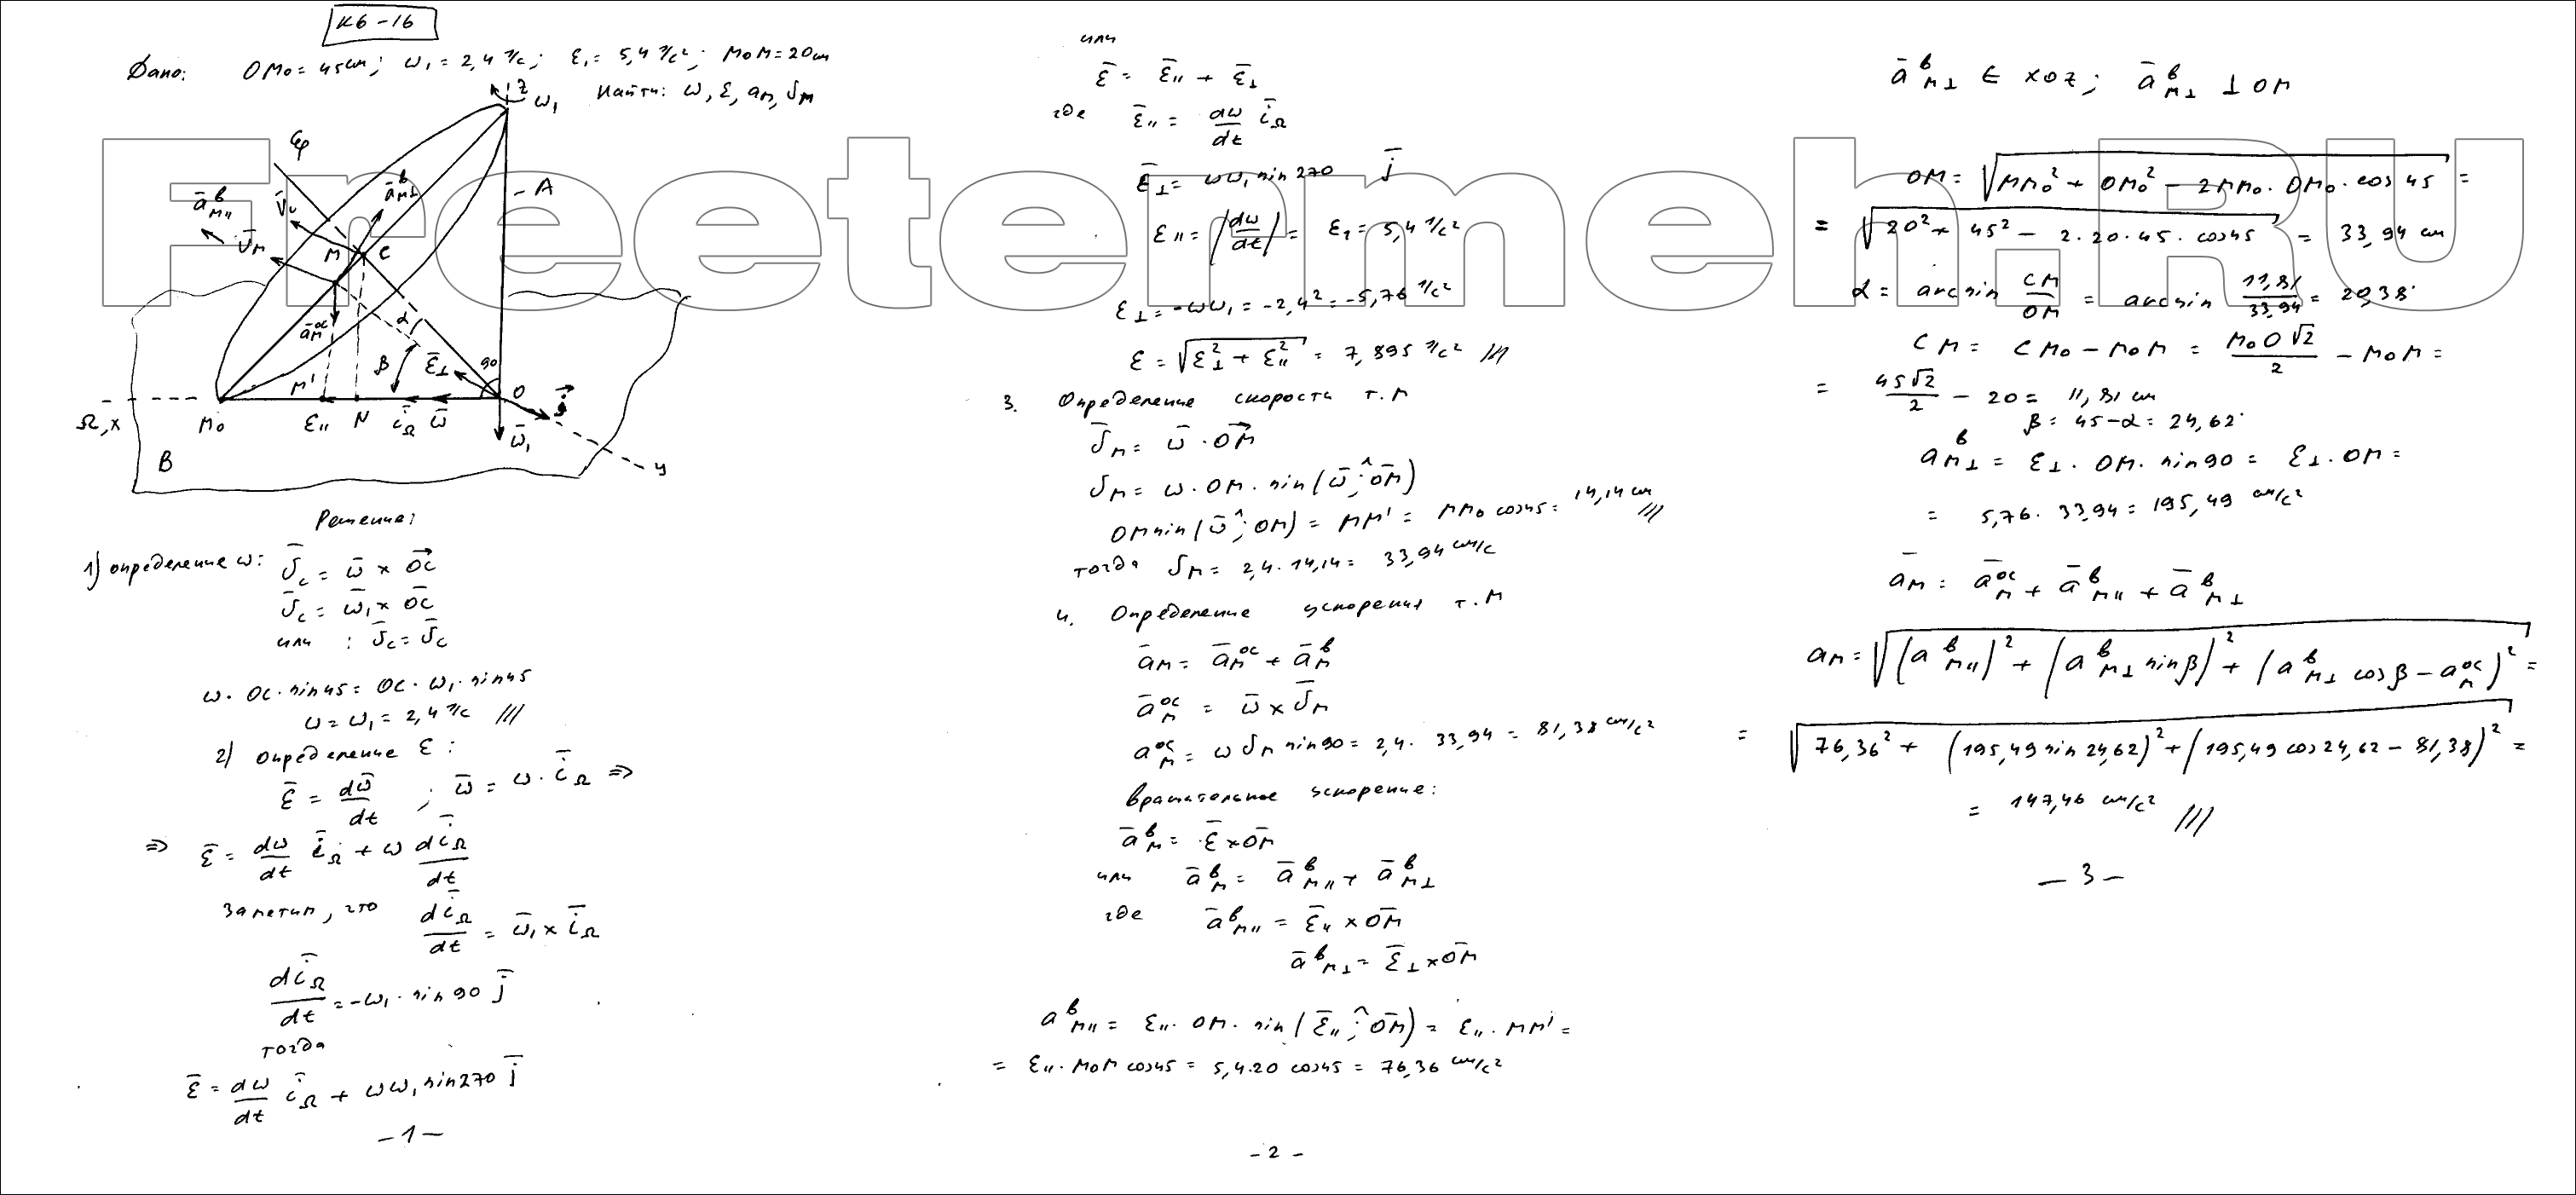 К6-16
Дано: OM₀ = 45 см; ω₁ = 2,4 1/с; ε₁ = 5,4 1/с²; M₀M = 20 см
Найти: ω, ε, aₘ, υₘ
z
ω₁
A
V̄c
ā^в_M∥
ā^в_M⊥
ῡ_M
M
C
ā^ос_M
α
β
ε̄⊥
90
O
j̄
Ω, x
M₀
M'
ε∥
N
ī_Ω
ω̄
ω̄₁
y
B
Решение:
1) определение ω: ῡc = ω̄ × OC
ῡc = ω̄₁ × OC
или : ῡc = ῡc
ω · OC · sin 45 = OC · ω₁ · sin 45
ω = ω₁ = 2,4 1/с ///
2) определение ε :
ε̄ = dω̄/dt ; ω̄ = ω · ī_Ω ⇒
⇒ ε̄ = dω/dt ī_Ω + ω dī_Ω/dt
Заметим, что dī_Ω/dt = ω̄₁ × ī_Ω
dī_Ω/dt = -ω₁ · sin 90 j̄
тогда
ε̄ = dω/dt ī_Ω + ωω₁ sin 270 j̄
- 1 -
или
ε̄ = ε̄∥ + ε̄⊥
где ε̄∥ = dω/dt ī_Ω
ε̄⊥ = ωω₁ sin 270 j̄
ε∥ = |dω/dt| = ε₁ = 5,4 1/с²
ε⊥ = -ωω₁ = -2,4² = -5,76 1/с²
ε = √(ε⊥² + ε∥²) = 7,895 1/с² ///
3. Определение скорости т. M
ῡ_M = ω̄ · OM
υ_M = ω · OM · sin(ω̄ ; OM)
OM sin(ω̄ ; OM) = MM' = MM₀ cos 45 = 14,14 см ///
тогда υ_M = 2,4 · 14,14 = 33,94 см/с
4. Определение ускорения т. M
ā_M = ā^ос_M + ā^в_M
ā^ос_M = ω̄ × ῡ_M
a^ос_M = ω υ_M sin 90 = 2,4 · 33,94 = 81,38 см/с²
вращательное ускорение:
ā^в_M = ε̄ × OM
или ā^в_M = ā^в_M∥ + ā^в_M⊥
где ā^в_M∥ = ε̄∥ × OM
ā^в_M⊥ = ε̄⊥ × OM
a^в_M∥ = ε∥ · OM · sin(ε̄∥ ; OM) = ε∥ · MM' =
= ε∥ · M₀M cos 45 = 5,4 · 20 cos 45 = 76,36 см/с²
- 2 -
ā^в_M⊥ ∈ xOz ; ā^в_M⊥ ⊥ OM
OM = √(MM₀² + OM₀² - 2MM₀ · OM₀ · cos 45) =
= √(20² + 45² - 2 · 20 · 45 · cos 45) = 33,94 см
α = arcsin CM/OM = arcsin 11,81/33,94 = 20,38°
CM = CM₀ - M₀M = M₀O√2/2 - M₀M =
= 45√2/2 - 20 = 11,81 см
β = 45 - α = 24,62°
a^в_M⊥ = ε⊥ · OM · sin 90 = ε⊥ · OM =
= 5,76 · 33,94 = 195,49 см/с²
ā_M = ā^ос_M + ā^в_M∥ + ā^в_M⊥
a_M = √((a^в_M∥)² + (a^в_M⊥ sin β)² + (a^в_M⊥ cos β - a^ос_M)²) =
= √(76,36² + (195,49 sin 24,62)² + (195,49 cos 24,62 - 81,38)²) =
= 147,46 см/с² ///
- 3 -
Freetermeh.RU